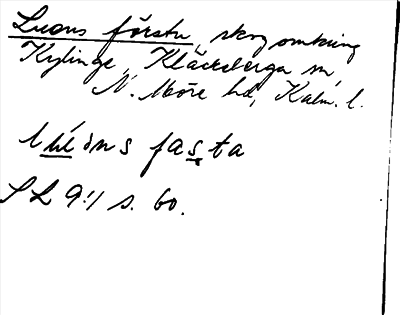 Luons första skog omkring
Kylinge, Kläckeberga sn,
N. Möre hd, Kalm. l.
fasta
SL 9:1 s. 60.